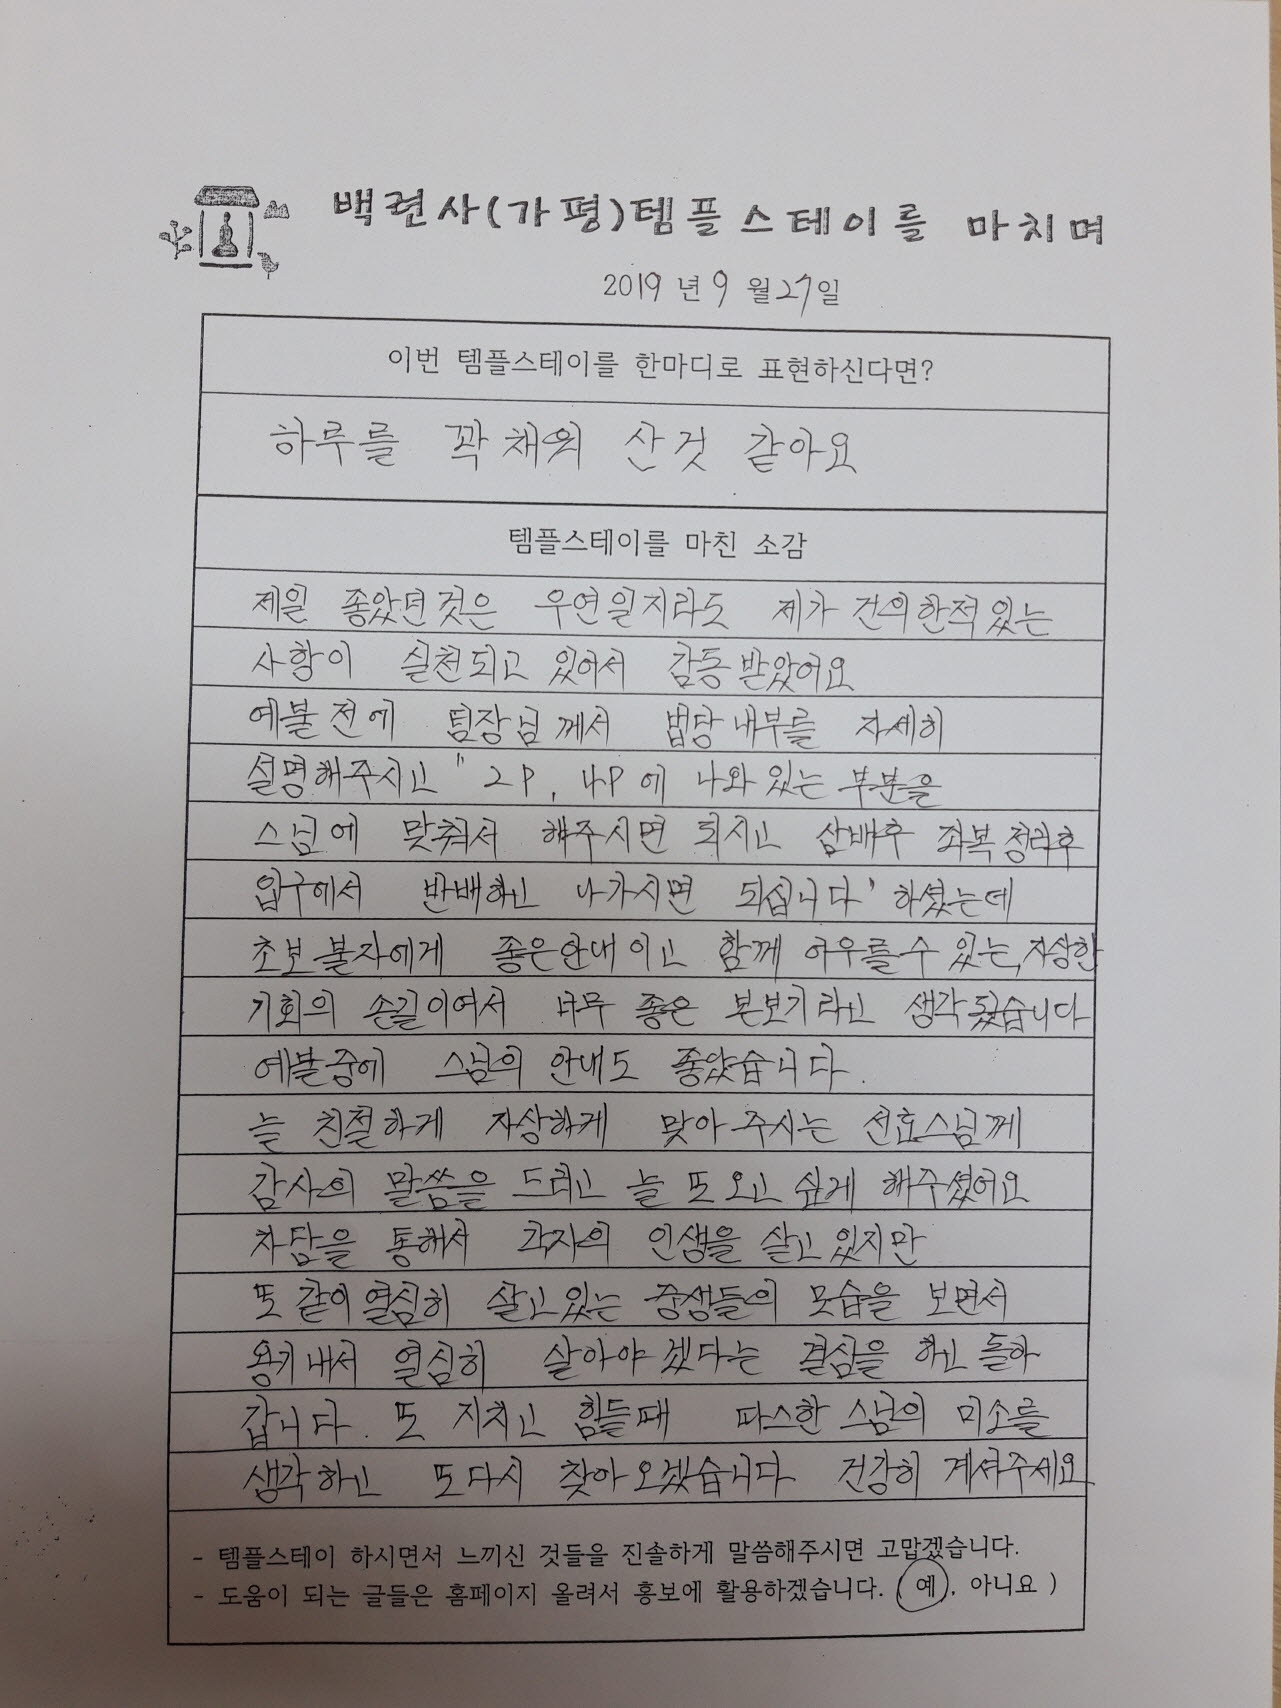 백련사(가평)템플스테이를 마치며
2019 년 9 월 27일
이번 템플스테이를 한마디로 표현하신다면?
하루를 꽉 채워 산것 같아요
템플스테이를 마친 소감
제일 좋았던것은 우연일지라도 제가 건의한적있는
사항이 실천되고 있어서 감동받았어요
예불전에 팀장님께서 법당내부를 자세히
설명해주시고 "2P, 4P에 나와있는 부분을
스님에 맞춰서 해주시면 되시고 삼배후 좌복정리후
입구에서 반배하고 나가시면 되십니다' 하셨는데
초보불자에게 좋은안내이고 함께 어우를수있는, 자상한
기회의 손길이어서 너무 좋은 본보기라고 생각됬습니다
예불중에 스님의 안내도 좋았습니다.
늘 친절하게 자상하게 맞아주시는 선효스님께
감사의 말씀을 드리고 늘 또오고 싶게 해주셨어요
차담을 통해서 각자의 인생을 살고있지만
또같이열심히 살고있는 중생들의 모습을 보면서
용기내서 열심히 살아야겠다는 결심을 하고 돌아
갑니다. 또 지치고 힘들때 따스한 스님의 미소를
생각하고 또다시 찾아오겠습니다 건강히 계셔주세요
- 템플스테이 하시면서 느끼신 것들을 진솔하게 말씀해주시면 고맙겠습니다.
- 도움이 되는 글들은 홈페이지 올려서 홍보에 활용하겠습니다. ( 예 , 아니요 )